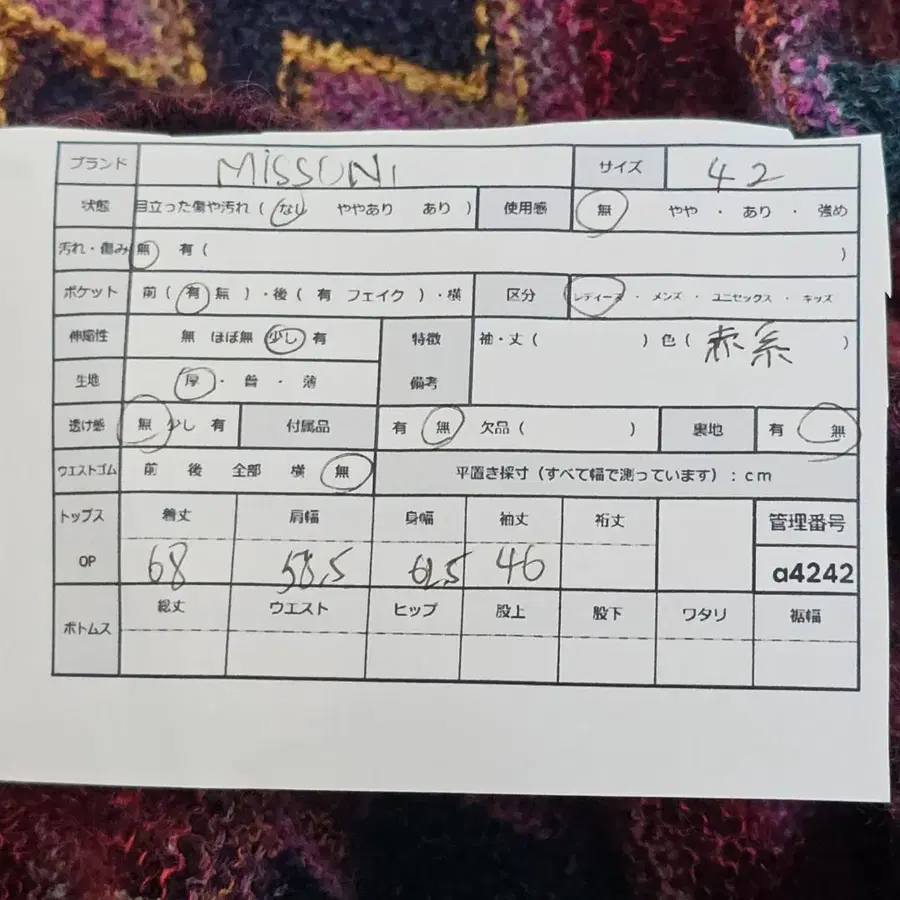 ブランド MISSONI サイズ 42
状態 目立った傷や汚れ ( なし ややあり あり ) 使用感 無 やや ・ あり ・ 強め
汚れ・傷み 無 有 ( )
ポケット 前 ( 有 無 ) ・後 ( 有 フェイク ) ・横 区分 レディース ・ メンズ ・ ユニセックス ・ キッズ
伸縮性 無 ほぼ無 少し 有 特徴 袖・丈 ( ) 色 ( 赤系 )
生地 厚 ・ 普 ・ 薄 備考
透け感 無 少し 有 付属品 有 無 欠品 ( ) 裏地 有 無
ウエストゴム 前 後 全部 横 無 平置き採寸 (すべて幅で測っています) : cm
トップス 着丈 肩幅 身幅 袖丈 裄丈 管理番号
OP 68 58,5 61,5 46 a4242
ボトムス 総丈 ウエスト ヒップ 股上 股下 ワタリ 裾幅